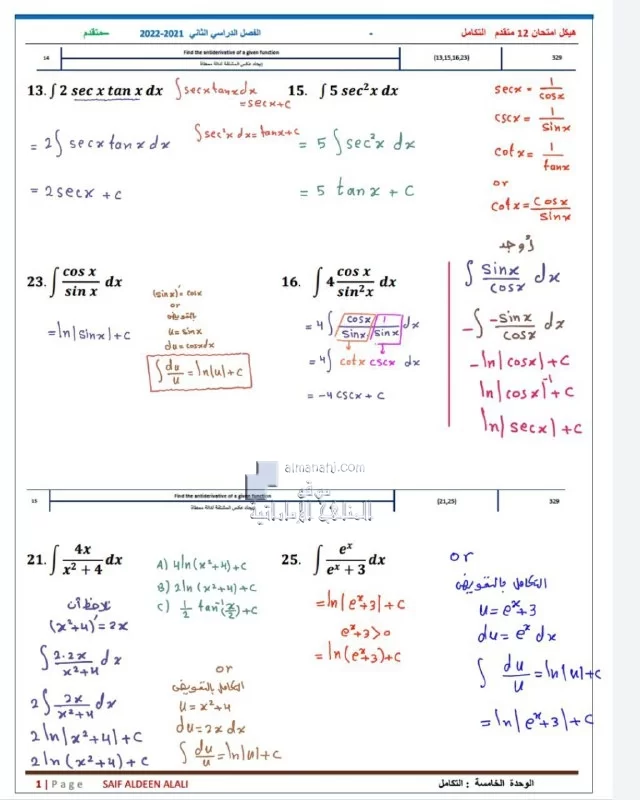 هيكل امتحان 12 متقدم التكامل - الفصل الدراسي الثاني 2021-2022 –متقدم
14 Find the antiderivative of a given function (13,15,16,23) 329
إيجاد عكس المشتقة لدالة معطاة
13. ∫ 2 sec x tan x dx
∫ secx tanx dx
= secx + C
= 2 ∫ sec x tan x dx
= 2 sec x + C
15. ∫ 5 sec²x dx
∫ sec²x dx = tanx + C
= 5 ∫ sec²x dx
= 5 tan x + C
secx = 1/cosx
cscx = 1/sinx
cotx = 1/tanx
or
cotx = cosx/sinx
23. ∫ cos x / sin x dx
(sinx)' = cosx
or
التعويض
u = sinx
du = cosx dx
∫ du/u = ln|u| + C
= ln|sinx| + C
16. ∫ 4 cos x / sin²x dx
= 4 ∫ cosx/sinx 1/sinx dx
= 4 ∫ cotx cscx dx
= -4 cscx + C
أوجد
∫ sinx/cosx dx
- ∫ -sinx/cosx dx
- ln|cosx| + C
ln|cosx|⁻¹ + C
ln|secx| + C
almanahj.com
موقع
المناهج الإماراتية
15 Find the antiderivative of a given function (21,25) 329
إيجاد عكس المشتقة لدالة معطاة
21. ∫ 4x / x² + 4 dx
A) 4 ln (x²+4) + C
B) 2 ln (x²+4) + C
C) 1/2 tan⁻¹(x/2) + C
لاحظ أن
(x²+4)' = 2x
∫ 2.2x / x²+4 dx
2 ∫ 2x / x²+4 dx
2 ln|x²+4| + C
2 ln (x²+4) + C
or
التكامل بالتعويض
u = x²+4
du = 2x dx
∫ du/u = ln|u| + C
25. ∫ eˣ / eˣ + 3 dx
= ln|eˣ+3| + C
eˣ+3 > 0
= ln(eˣ+3) + C
or
التكامل بالتعويض
u = eˣ+3
du = eˣ dx
∫ du/u = ln|u| + C
= ln|eˣ+3| + C
1 | Page SAIF ALDEEN ALALI الوحدة الخامسة : التكامل